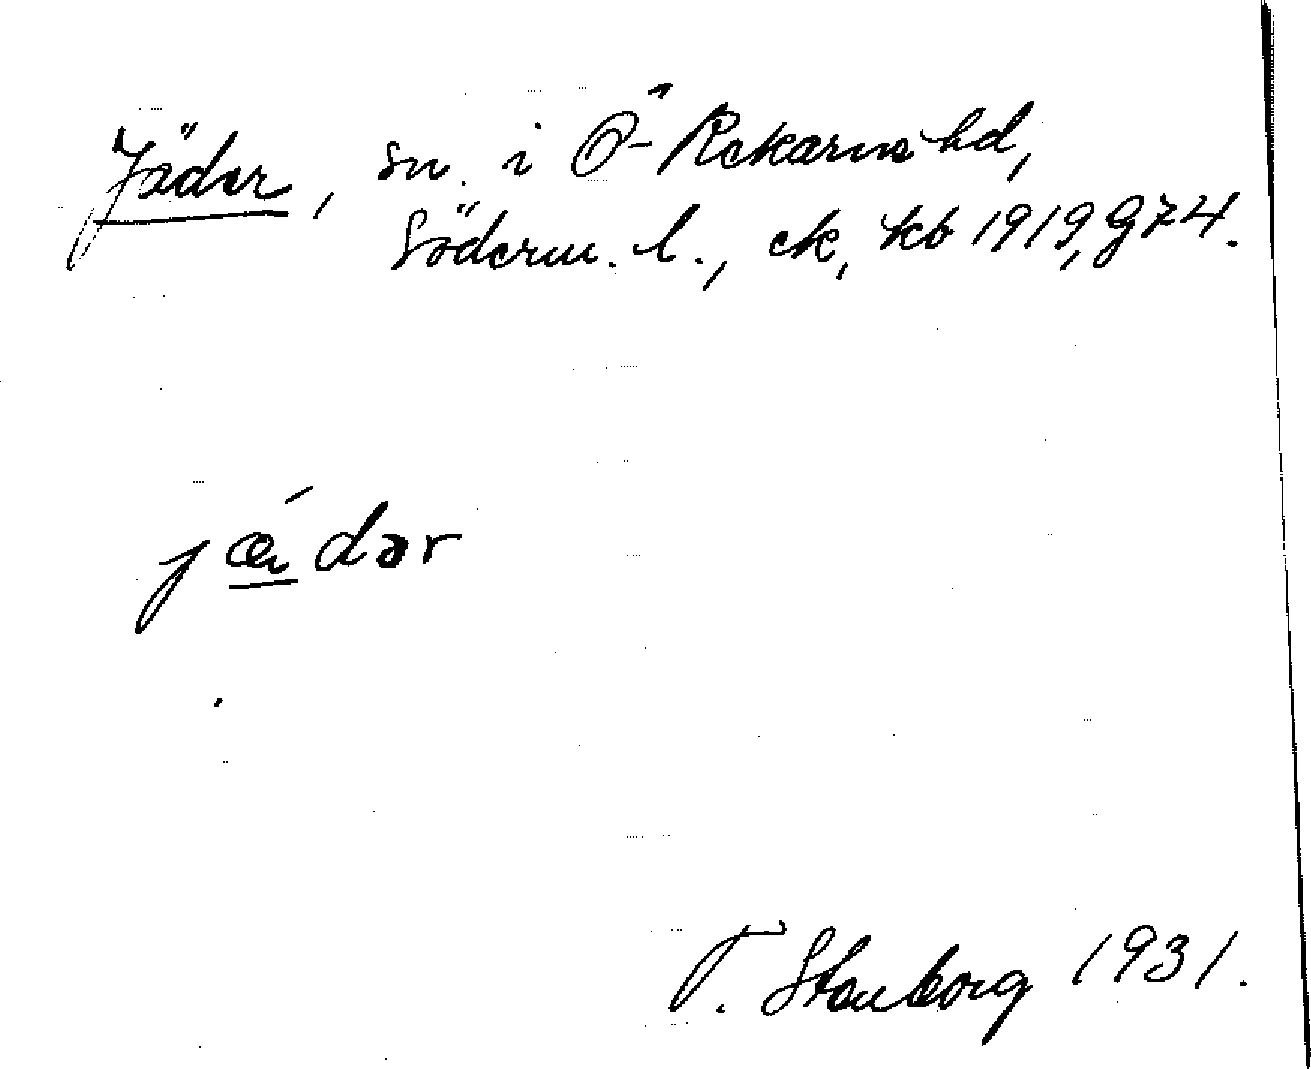 Jäder, sn. i Ö-Rekarne hd,
Söderm. l., ek, kb 1919, g74.
jǽdər
T. Stenborg 1931.